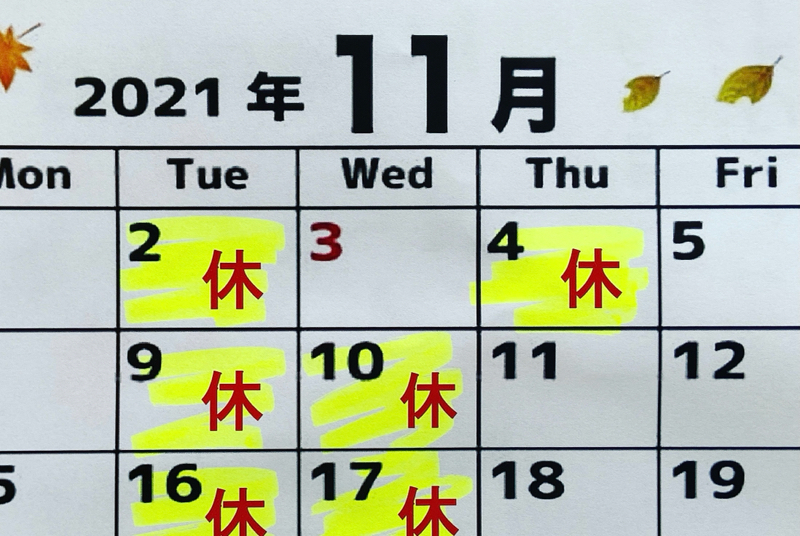 2021年 11月
Mon Tue Wed Thu Fri
2 休 3 4 休 5
9 休 10 休 11 12
5 16 休 17 休 18 19